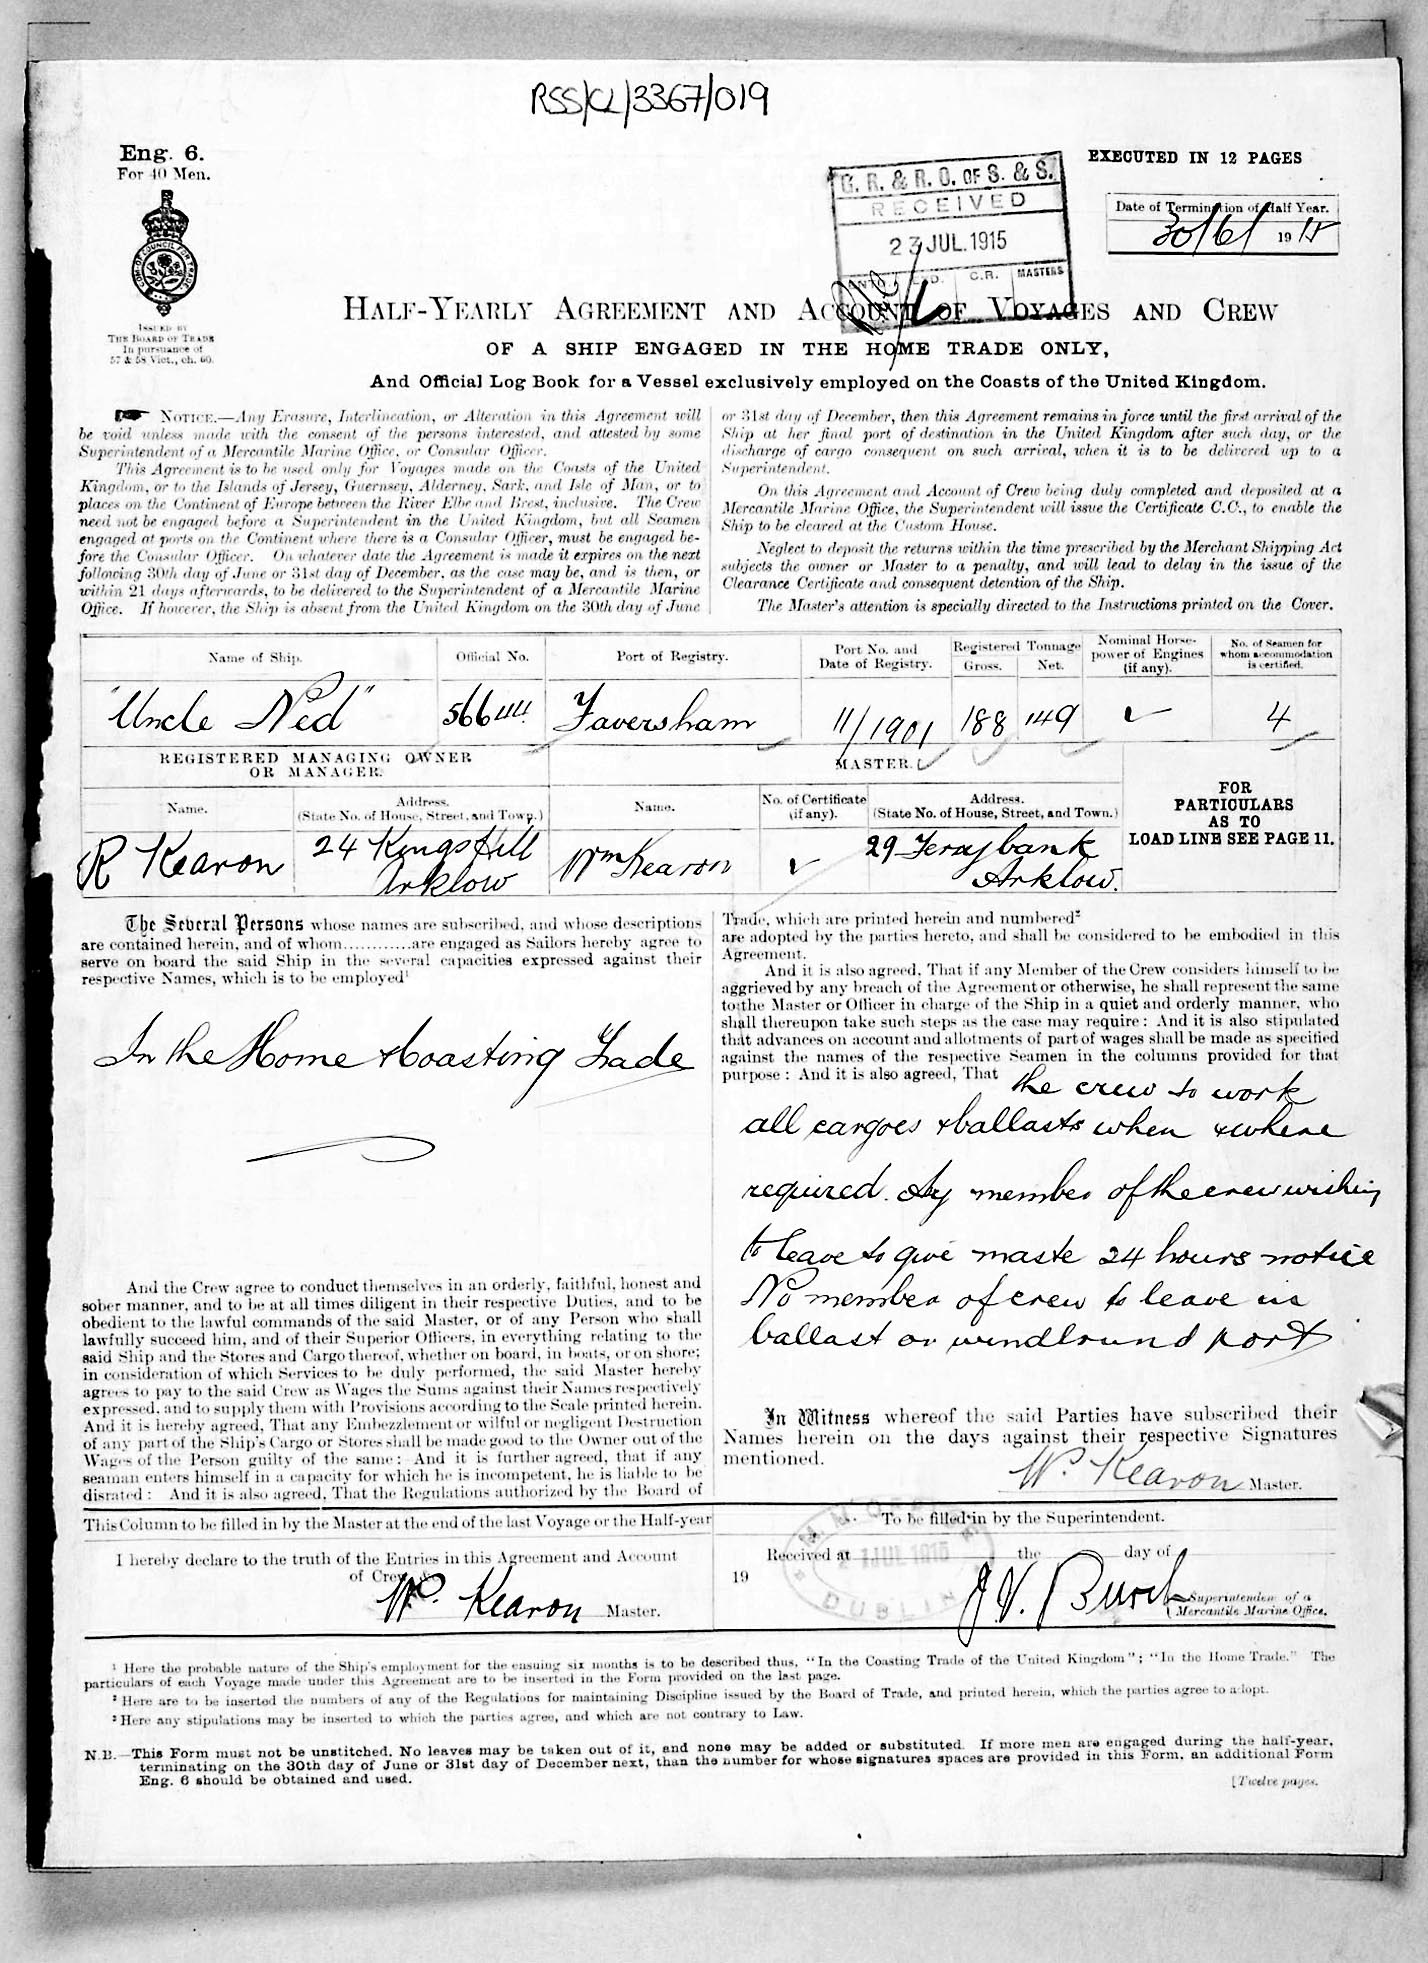 RSS/CL/3367/019
Eng. 6.
For 40 Men.
EXECUTED IN 12 PAGES
G. R. & R. O. OF S. & S.
RECEIVED
23 JUL. 1915
C.R. MASTERS
Date of Termination of Half Year.
30/6/ 1915
COM. OF COUNCIL FOR TRADE
ISSUED BY
THE BOARD OF TRADE
In pursuance of
57 & 58 Vict., ch. 60.
HALF-YEARLY AGREEMENT AND ACCOUNT OF VOYAGES AND CREW
OF A SHIP ENGAGED IN THE HOME TRADE ONLY,
And Official Log Book for a Vessel exclusively employed on the Coasts of the United Kingdom.
NOTICE.—Any Erasure, Interlineation, or Alteration in this Agreement will
be void unless made with the consent of the persons interested, and attested by some
Superintendent of a Mercantile Marine Office, or Consular Officer.
This Agreement is to be used only for Voyages made on the Coasts of the United
Kingdom, or to the Islands of Jersey, Guernsey, Alderney, Sark, and Isle of Man, or to
places on the Continent of Europe between the River Elbe and Brest, inclusive. The Crew
need not be engaged before a Superintendent in the United Kingdom, but all Seamen
engaged at ports on the Continent where there is a Consular Officer, must be engaged be-
fore the Consular Officer. On whatever date the Agreement is made it expires on the next
following 30th day of June or 31st day of December, as the case may be, and is then, or
within 21 days afterwards, to be delivered to the Superintendent of a Mercantile Marine
Office. If however, the Ship is absent from the United Kingdom on the 30th day of June
or 31st day of December, then this Agreement remains in force until the first arrival of the
Ship at her final port of destination in the United Kingdom after such day, or the
discharge of cargo consequent on such arrival, when it is to be delivered up to a
Superintendent.
On this Agreement and Account of Crew being duly completed and deposited at a
Mercantile Marine Office, the Superintendent will issue the Certificate C.C., to enable the
Ship to be cleared at the Custom House.
Neglect to deposit the returns within the time prescribed by the Merchant Shipping Act
subjects the owner or Master to a penalty, and will lead to delay in the issue of the
Clearance Certificate and consequent detention of the Ship.
The Master's attention is specially directed to the Instructions printed on the Cover.
Name of Ship. Official No. Port of Registry. Port No. and Date of Registry. Registered Tonnage Gross. Net. Nominal Horse-power of Engines (if any). No. of Seamen for whom accommodation is certified.
"Uncle Ned" 56644 Faversham 11/1901 188 149 4
REGISTERED MANAGING OWNER
OR MANAGER.
MASTER.
Name. Address. (State No. of House, Street, and Town.) Name. No. of Certificate (if any). Address. (State No. of House, Street, and Town.)
FOR
PARTICULARS
AS TO
LOAD LINE SEE PAGE 11.
R Kearon 24 Kings Hill Arklow Wm Kearon 29 Ferrybank Arklow.
The Several Persons whose names are subscribed, and whose descriptions
are contained herein, and of whom............are engaged as Sailors hereby agree to
serve on board the said Ship in the several capacities expressed against their
respective Names, which is to be employed¹
In the Home & Coasting Trade
And the Crew agree to conduct themselves in an orderly, faithful, honest and
sober manner, and to be at all times diligent in their respective Duties, and to be
obedient to the lawful commands of the said Master, or of any Person who shall
lawfully succeed him, and of their Superior Officers, in everything relating to the
said Ship and the Stores and Cargo thereof, whether on board, in boats, or on shore;
in consideration of which Services to be duly performed, the said Master hereby
agrees to pay to the said Crew as Wages the Sums against their Names respectively
expressed, and to supply them with Provisions according to the Scale printed herein.
And it is hereby agreed, That any Embezzlement or wilful or negligent Destruction
of any part of the Ship's Cargo or Stores shall be made good to the Owner out of the
Wages of the Person guilty of the same: And it is further agreed, that if any
seaman enters himself in a capacity for which he is incompetent, he is liable to be
disrated: And it is also agreed, That the Regulations authorized by the Board of
Trade, which are printed herein and numbered²
are adopted by the parties hereto, and shall be considered to be embodied in this
Agreement.
And it is also agreed, That if any Member of the Crew considers himself to be
aggrieved by any breach of the Agreement or otherwise, he shall represent the same
to the Master or Officer in charge of the Ship in a quiet and orderly manner, who
shall thereupon take such steps as the case may require: And it is also stipulated
that advances on account and allotments of part of wages shall be made as specified
against the names of the respective Seamen in the columns provided for that
purpose: And it is also agreed, That the crew to work
all cargoes & ballasts when & where
required. Ay member of the crew wishing
to leave to give maste 24 hours notice
No member of crew to leave in
ballast or windbound port
In Witness whereof the said Parties have subscribed their
Names herein on the days against their respective Signatures
mentioned.
Wm Kearon Master.
This Column to be filled in by the Master at the end of the last Voyage or the Half-year
I hereby declare to the truth of the Entries in this Agreement and Account
of Crew, &c.
Wm Kearon Master.
To be filled in by the Superintendent.
Received at the day of
19
M. M. OFFICE
21 JUL 1915
DUBLIN
J. V. Burch Superintendent of a
Mercantile Marine Office.
¹ Here the probable nature of the Ship's employment for the ensuing six months is to be described thus, "In the Coasting Trade of the United Kingdom"; "In the Home Trade." The
particulars of each Voyage made under this Agreement are to be inserted in the Form provided on the last page.
² Here are to be inserted the numbers of any of the Regulations for maintaining Discipline issued by the Board of Trade, and printed herein, which the parties agree to adopt.
³ Here any stipulations may be inserted to which the parties agree, and which are not contrary to Law.
N.B.—This Form must not be unstitched. No leaves may be taken out of it, and none may be added or substituted. If more men are engaged during the half-year,
terminating on the 30th day of June or 31st day of December next, than the number for whose signatures spaces are provided in this Form, an additional Form
Eng. 6 should be obtained and used.
[Twelve pages.